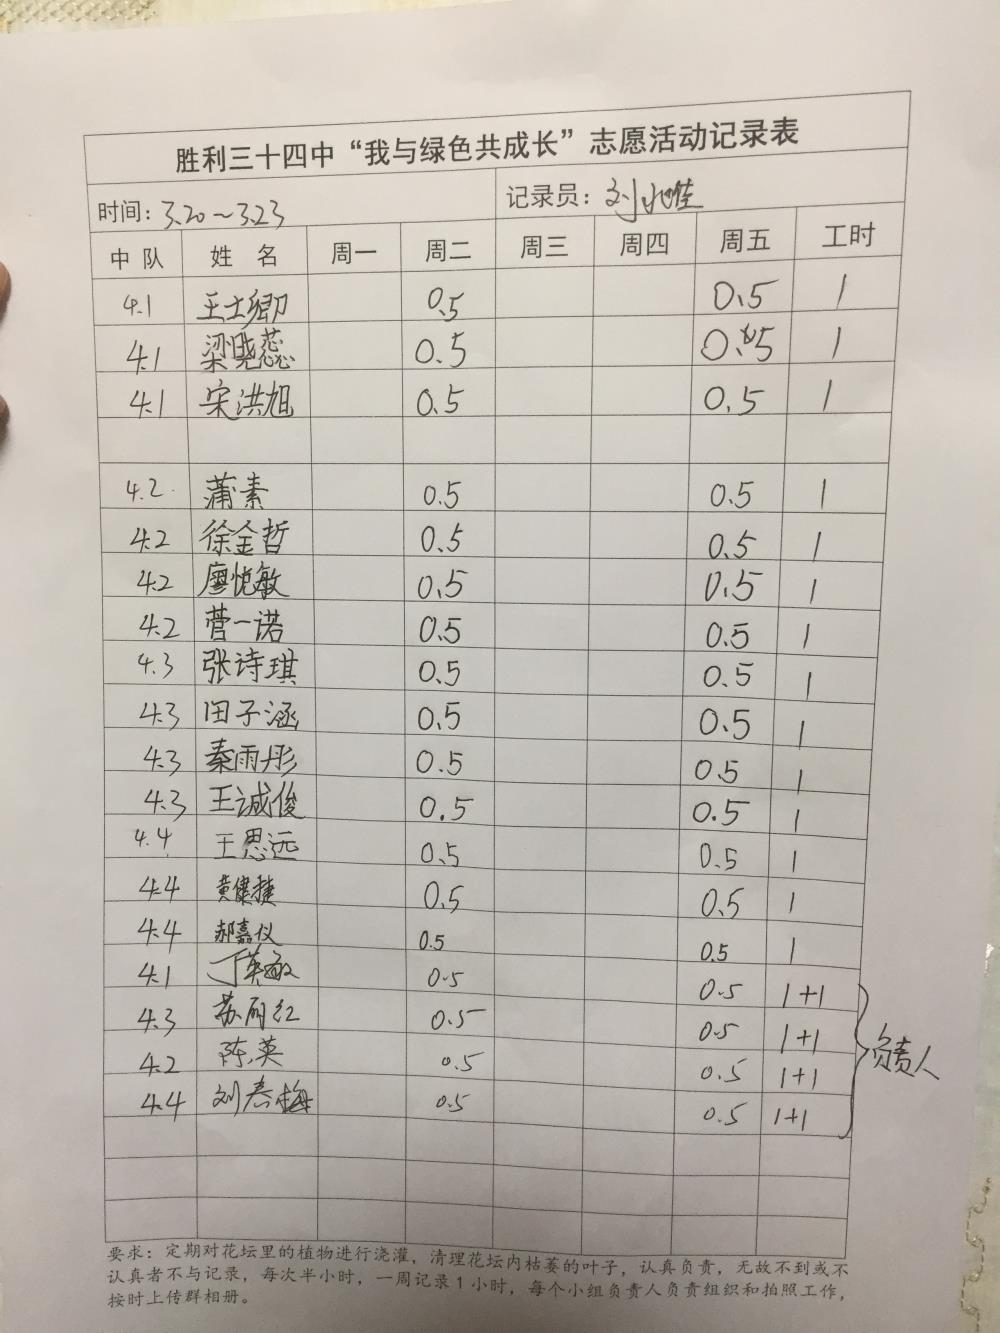 胜利三十四中“我与绿色共成长”志愿活动记录表
时间：3.20～3.23 记录员：刘
中队 姓名 周一 周二 周三 周四 周五 工时
4.1 王士卿 0.5 0.5 1
4.1 梁晓蕊 0.5 0.5 1
4.1 宋洪旭 0.5 0.5 1
4.2 蒲素 0.5 0.5 1
4.2 徐金哲 0.5 0.5 1
4.2 廖悦敏 0.5 0.5 1
4.2 菅一诺 0.5 0.5 1
4.3 张诗琪 0.5 0.5 1
4.3 田子涵 0.5 0.5 1
4.3 秦雨彤 0.5 0.5 1
4.3 王诚俊 0.5 0.5 1
4.4 王思远 0.5 0.5 1
4.4 黄健捷 0.5 0.5 1
4.4 郝嘉仪 0.5 0.5 1
4.1 丁英敏 0.5 0.5 1+1
4.3 苏丽红 0.5 0.5 1+1
负责人
4.2 陈英 0.5 0.5 1+1
4.4 刘春梅 0.5 0.5 1+1
要求：定期对花坛里的植物进行浇灌，清理花坛内枯萎的叶子，认真负责，无故不到或不
认真者不与记录，每次半小时，一周记录1小时，每个小组负责人负责组织和拍照工作，
按时上传群相册。